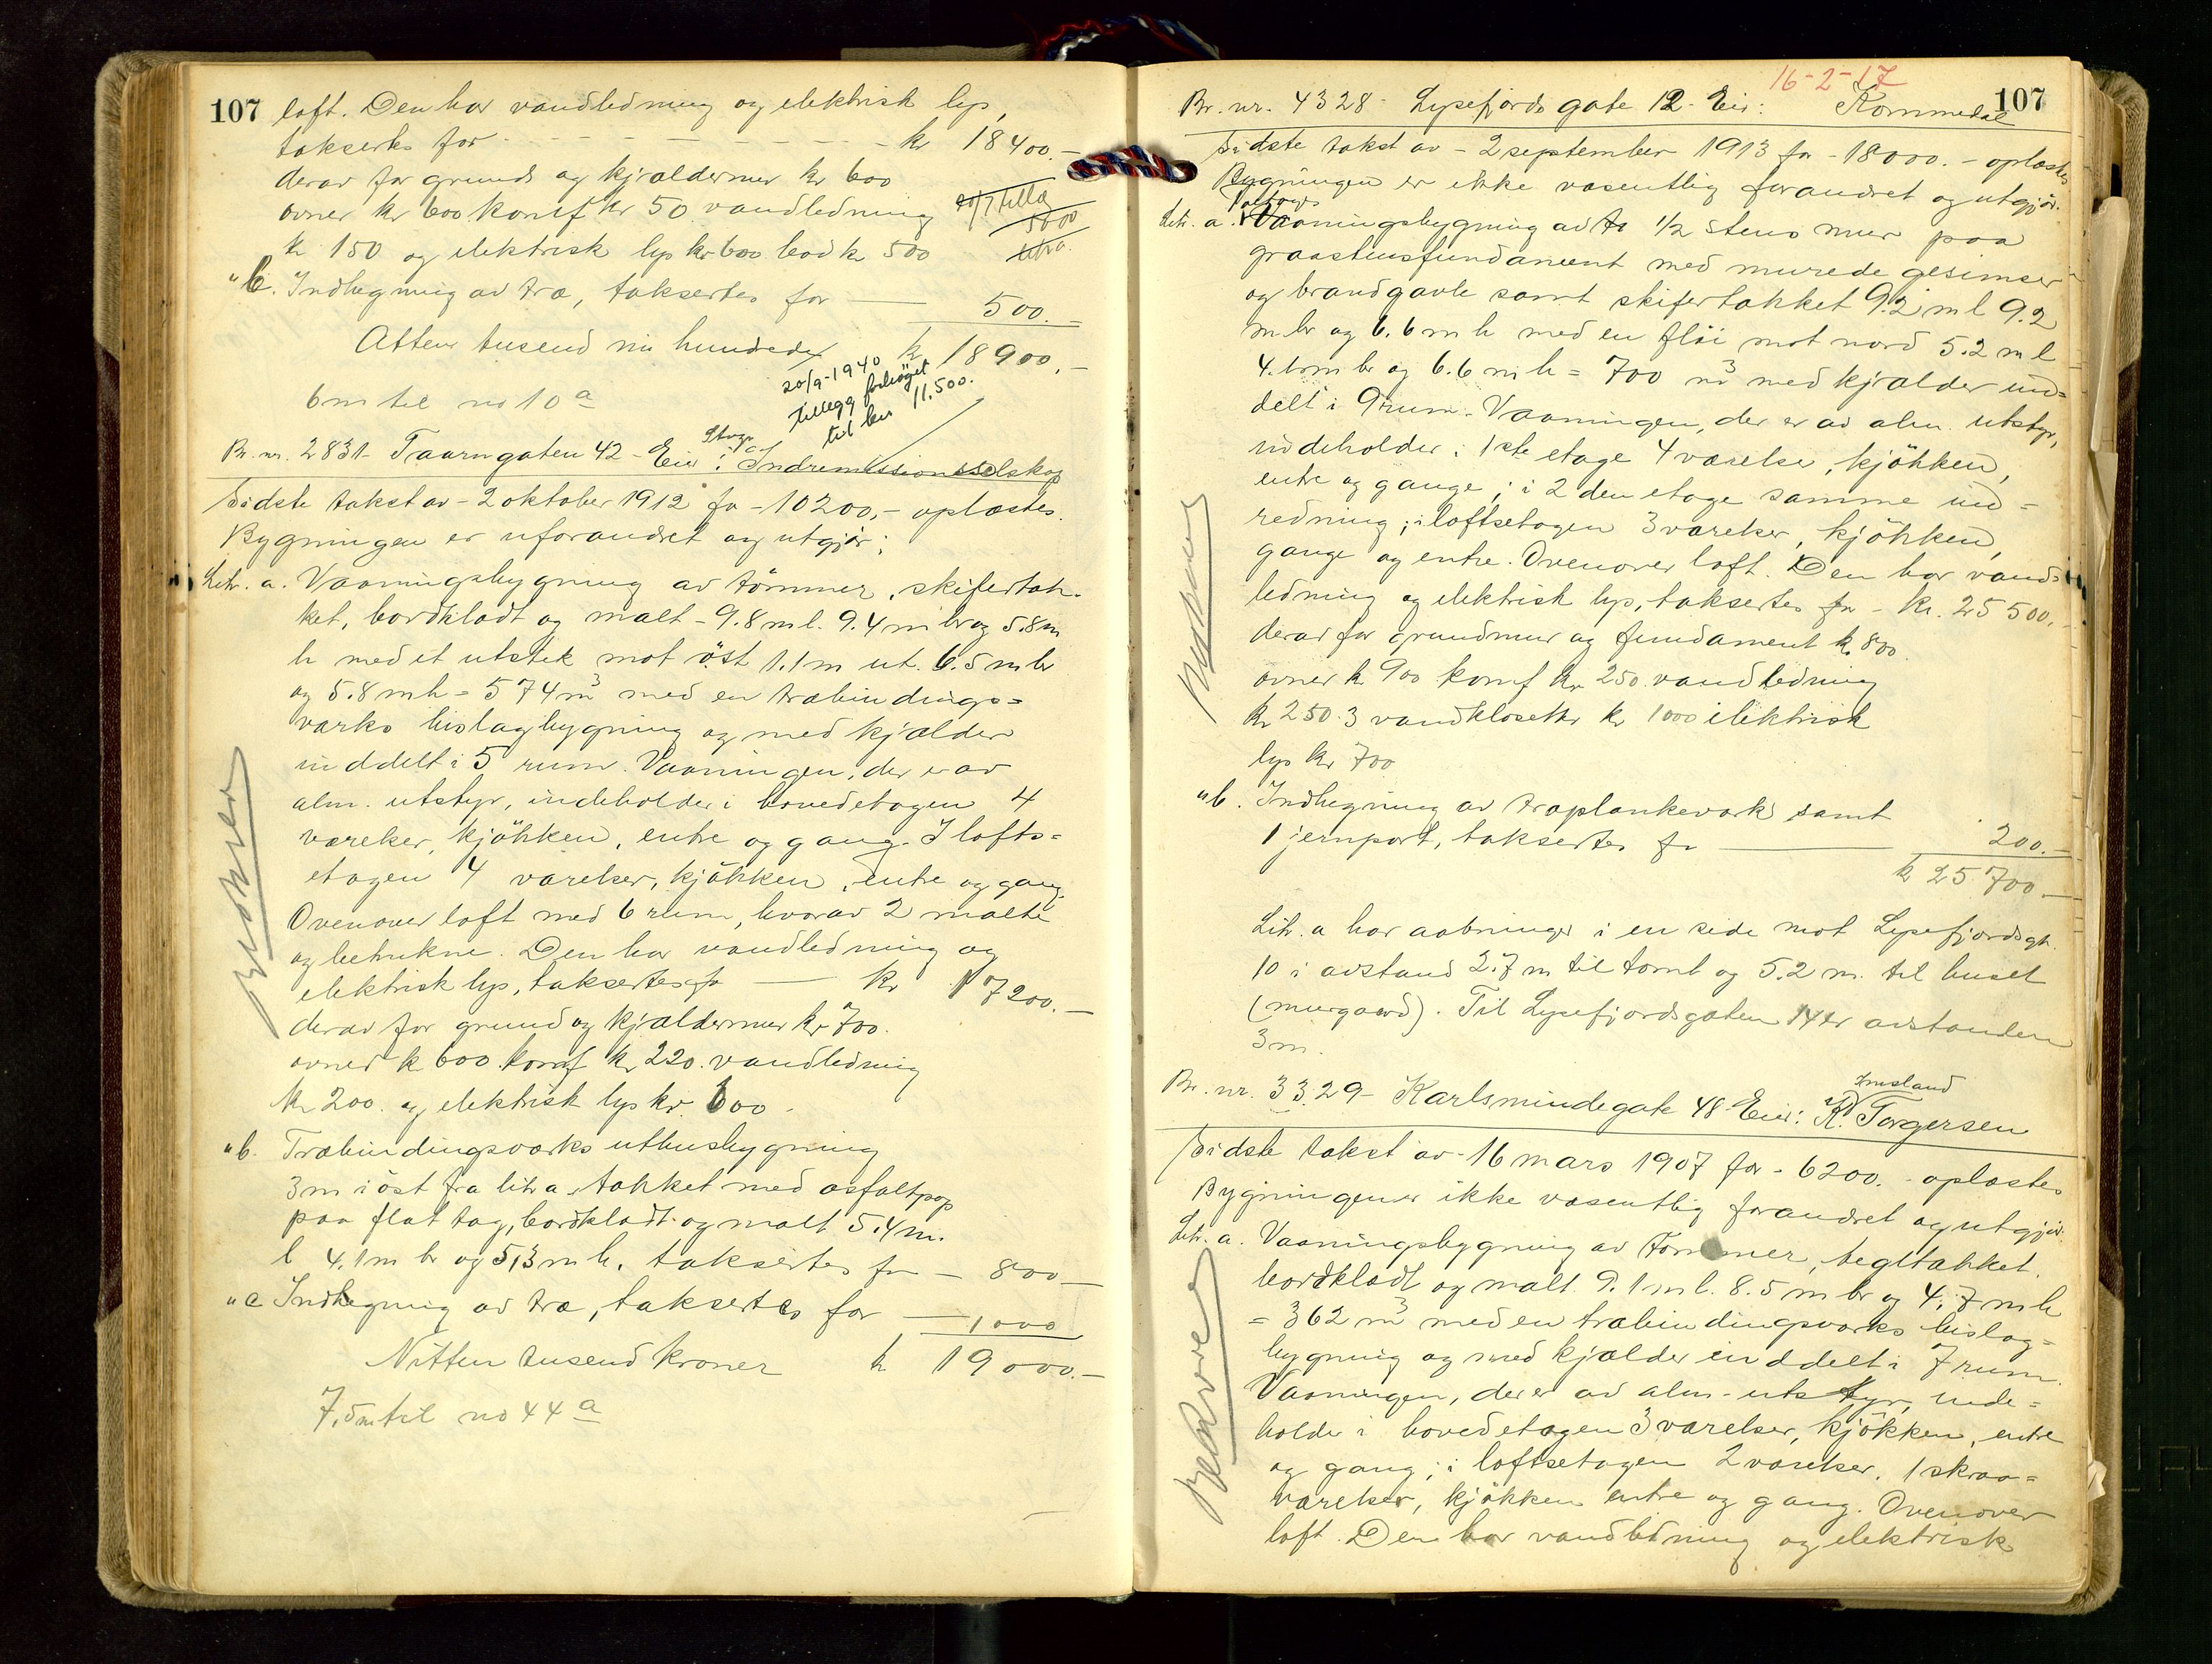 107
loft. Den har vandledning og elektrisk lys,
takserts for - - - - - - kr 18400.-
derav for grund og kjældermur kr 600
ovner kr 600 komf kr 50 vandledning
kr 150 og elektrisk lys kr 600 bod kr 500
"b. Indhegning av træ, taksertes for — 500.-
Atten tusend ni hundrede kr 18900.-
20/9-1940
tillegg forhøget
til kr 11.500.
6m til no 10 a
Br. nr. 2831- Taarngaten 42 - Eier: Indremissionsselskap
Sidste takst av - 2 oktober 1912 for - 10200,- oplæstes.
Bygningen er uforandret og utgjør:
Litr. a. Vaaningsbygning av tömmer, skifertak-
ket, bordklædt og malt - 9.8 m l. 9.4 m br og 5.8 m
h med et utstik mot öst 1.1 m ut. 6.5 m br
og 5.8 m h = 574 m3 med en træbindings=
værks bislagbygning og med kjælder
inddelt i 5 rum. Vaaningen, der er av
alm. utstyr, indeholder i hovedetagen 4
værelser, kjökken, entre og gang. I lofts=
etagen 4 værelser, kjökken, entre og gang
Ovenover loft med 6 rum, hvorav 2 malte
og betrukne. Den har vandledning og
elektrisk lys, taksertes for — kr 17200.-
derav for grund og kjældermur kr 700.
ovner kr 600 komf kr 220. vandledning
kr 200. og elektrisk lys kr. 600 -
"b. Træbindingsværks uthusbygning
3m i öst fra litr a, tækket med asfaltpap
paa flat tag, bordklædt og malt 5.4 m.
l 4.1 m br og 5,3 m h, taksertes for — 800 —
"c Indhegning av træ, taksertes for — 1000
Nitten tusend kroner kr 19000.-
7,5m til no 44 a
16-2-17
107
Br. nr. 4328- Lysefjords gate 12- Eier: Kommedal
Sidste takst av - 2 september 1913 for - 18000.- oplæstes
Bygningen er ikke væsentlig forandret og utgjør.
Litr. a. Vaaningsbygning av 1/2 stens mur paa
graastensfundament med murede gesimser
og brandgavle samt skifertækket 9.2 m l 9.2
m br og 6.6 m h med en flöi mot nord 5.2 m l
m br og 6.6 m h = 700 m3 med kjælder ind=
delt i 9 rum. Vaaningen, der er av alm. utstyr,
indeholder i 1ste etage 4 værelser, kjökken,
entre og gange; i 2den etage samme ind=
redning; i loftsetagen 3 værelser, kjökken,
gange og entre. Ovenover loft. Den har vand=
ledning og elektrisk lys, taksertes for - kr. 25500.-
derav for grundmur og fundament kr 800
ovner kr 900 komf kr 250 vandledning
kr 250. 3 vandklosetter kr 1000 elektrisk
lys kr 700
"b. Indhegning av træplankeværk samt
1 jernport, taksertes for — 200.-
kr 25700.-
Litr. a har aabninger i en side mot Lysefjordsgt.
10 i avstand 2.7 m til tomt og 5.2 m. til huset
(murgaard). Til Lysefjordsgaten 14 er avstanden
3m.
Imsland
Br. nr. 3329- Karlsmindegate 48 Eier: K. Torgersen
Sidste takst av - 16 mars 1907 for - 6200.- oplæstes
Bygningen er ikke væsentlig forandret og utgjør.
Litr. a. Vaaningsbygning av tømmer, tegltækket,
bordklædt og malt 9.1 m l. 8.5 m br og 4.7 m h
= 362 m3 med en træbindingsværks bislag=
bygning og med kjælder inddelt i 7 rum.
Vaaningen, der er av alm. utstyr, inde=
holder i hovedetagen 3 værelser, kjökken, entre
og gang; i loftsetagen 2 værelser, 1 skraa=
værelser, kjökken entre og gang. Ovenover
loft. Den har vandledning og elektrisk